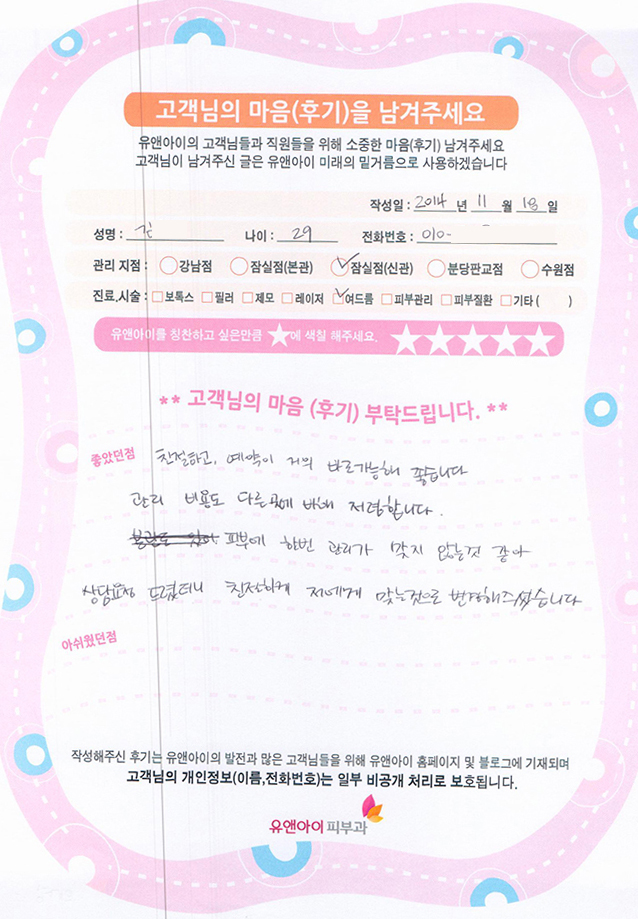 고객님의 마음(후기)을 남겨주세요
유앤아이의 고객님들과 직원들을 위해 소중한 마음(후기) 남겨주세요
고객님이 남겨주신 글은 유앤아이 미래의 밑거름으로 사용하겠습니다
작성일 : 2014 년 11 월 18 일
성명 : 김 나이 : 29 전화번호 : 010-
관리 지점 : 강남점 잠실점(본관) 잠실점(신관) 분당판교점 수원점
진료,시술 : 보톡스 필러 제모 레이저 여드름 피부관리 피부질환 기타 ( )
유앤아이를 칭찬하고 싶은만큼 ★에 색칠 해주세요. ★★★★★
** 고객님의 마음 (후기) 부탁드립니다. **
좋았던점 친절하고, 예약이 거의 바로가능해 좋습니다
관리 비용도 다른곳에 비해 저렴합니다.
피부에 한번 관리가 맞지 않는것 같아
상담요청 드렸더니 친절하게 저에게 맞는것으로 변경해주셨습니다
아쉬웠던점
작성해주신 후기는 유앤아이의 발전과 많은 고객님들을 위해 유앤아이 홈페이지 및 블로그에 기재되며
고객님의 개인정보(이름,전화번호)는 일부 비공개 처리로 보호됩니다.
유앤아이 피부과